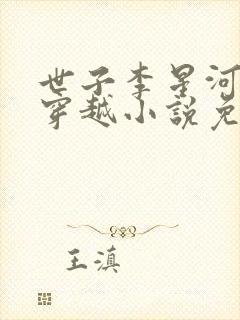 世子李星河
穿越小說免
王滇